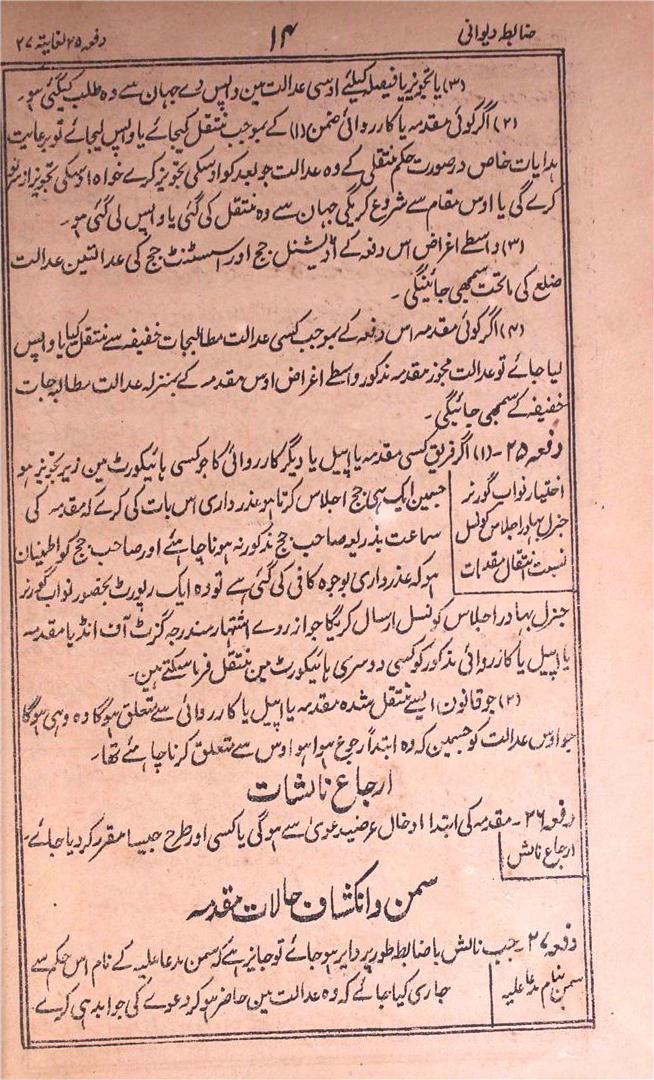 ضابطہ دیوانی
۱۴
دفعہ ۲۵ لغایتہ ۲۷
(۳) یا تجویز یا فیصلہ کیلئے اوسی عدالت مین واپس دے جہان سے وہ طلب کیگئی ہو۔
(۲) اگر کوئی مقدمہ یا کارروائی ضمن (۱) کے بموجب منتقل کیجائے یا واپس لیجائے تو برعایت
ہدایات خاص درصورت حکم منتقلی کے وہ عدالت جو بعد کو اوسکی تجویز کرے خواہ اوسکی تجویز از سرنو
کرے گی یا اوس مقام سے شروع کریگی جہان سے وہ منتقل کی گئی یا واپس لی گئی ہو۔
(۳) واسطے اغراض اس دفعہ کے اڈیشنل جج اور اسسٹنٹ جج کی عدالتین عدالت
ضلع کی ماتحت سمجھی جائینگی۔
(۴) اگر کوئی مقدمہ اس دفعہ کے بموجب کسی عدالت مطالبجات خفیفہ سے منتقل کیا یا واپس
لیا جائے تو عدالت مجوز مقدمہ مذکور واسطے اغراض اوس مقدمہ کے بمنزلہ عدالت مطالبہ جات
خفیفہ کے سمجھی جائیگی۔
دفعہ ۲۵۔ (۱) اگر فریق کسی مقدمہ یا اپیل یا دیگر کارروائی کا جو کسی ہائیکورٹ مین زیر تجویز ہو
اختیار نواب گورنر
جنرل بہادر اجلاس کونسل
نسبت انتقال مقدمات
جسمین ایک ہی جج اجلاس کرتا ہو عذرداری اس بات کی کرے کہ مقدمہ کی
سماعت بذریعہ صاحب جج مذکور نہ ہونا چاہئے اور صاحب جج کو اطمینان
ہو کہ عذرداری بوجوہ کافی کی گئی ہے تو وہ ایک رپورٹ بحضور نواب گورنر
جنرل بہادر اجلاس کونسل ارسال کریگا جو از روے اشتہار مندرجہ گزٹ آف انڈیا مقدمہ
یا اپیل یا کارروائی مذکور کو کسی دوسری ہائیکورٹ مین منتقل فرما سکتے ہین۔
(۲) جو قانون ایسے منتقل شدہ مقدمہ یا اپیل یا کارروائی سے متعلق ہوگا وہ وہی ہوگا
جو اوس عدالت کو جسمین کہ وہ ابتداً رجوع ہوا ہو اوس سے متعلق کرنا چاہئے تھا۔
ارجاع نالشات
دفعہ ۲۶۔ مقدمہ کی ابتدا ادخال عرضیدعویٰ سے ہوگی یا کسی اور طرح جیسا مقرر کر دیا جائے۔
ارجاع نالش
سمن و انکشاف حالات مقدمہ
دفعہ ۲۷۔ جب نالش باضابطہ طور پر دایر ہو جائے تو جایز ہے کہ سمن مدعا علیہ کے نام اس حکم سے
سمن بنام مدعا علیہ
جاری کیا جائے کہ وہ عدالت مین حاضر ہو کر دعوے کی جوابدہی کرے۔